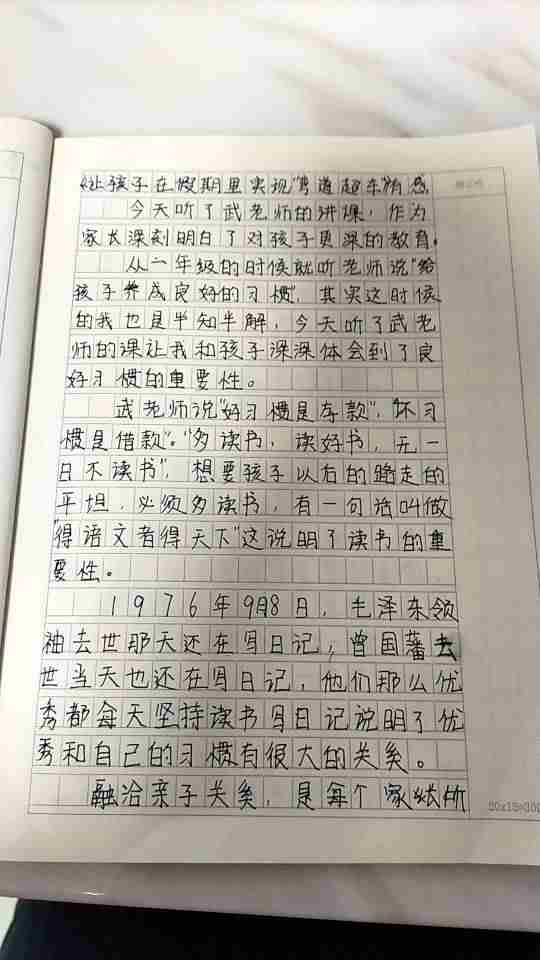 《让孩子在假期里实现"弯道超车"有感
今天听了武老师的讲课，作为
家长深刻明白了对孩子更深的教育。
从一年级的时候就听老师说"给
孩子养成良好的习惯"，其实这时候
的我也是半知半解，今天听了武老
师的课让我和孩子深深体会到了良
好习惯的重要性。
武老师说"好习惯是存款"，"坏习
惯是借款"。"多读书，读好书，无一
日不读书"，想要孩子以后的路走的
平坦，必须多读书，有一句话叫做
"得语文者得天下"这说明了读书的重
要性。
1976年9月8日，毛泽东领
袖去世那天还在写日记，曾国藩去
世当天也还在写日记，他们那么优
秀都每天坚持读书写日记说明了优
秀和自己的习惯有很大的关系。
融洽亲子关系，是每个家长所
20x15=300